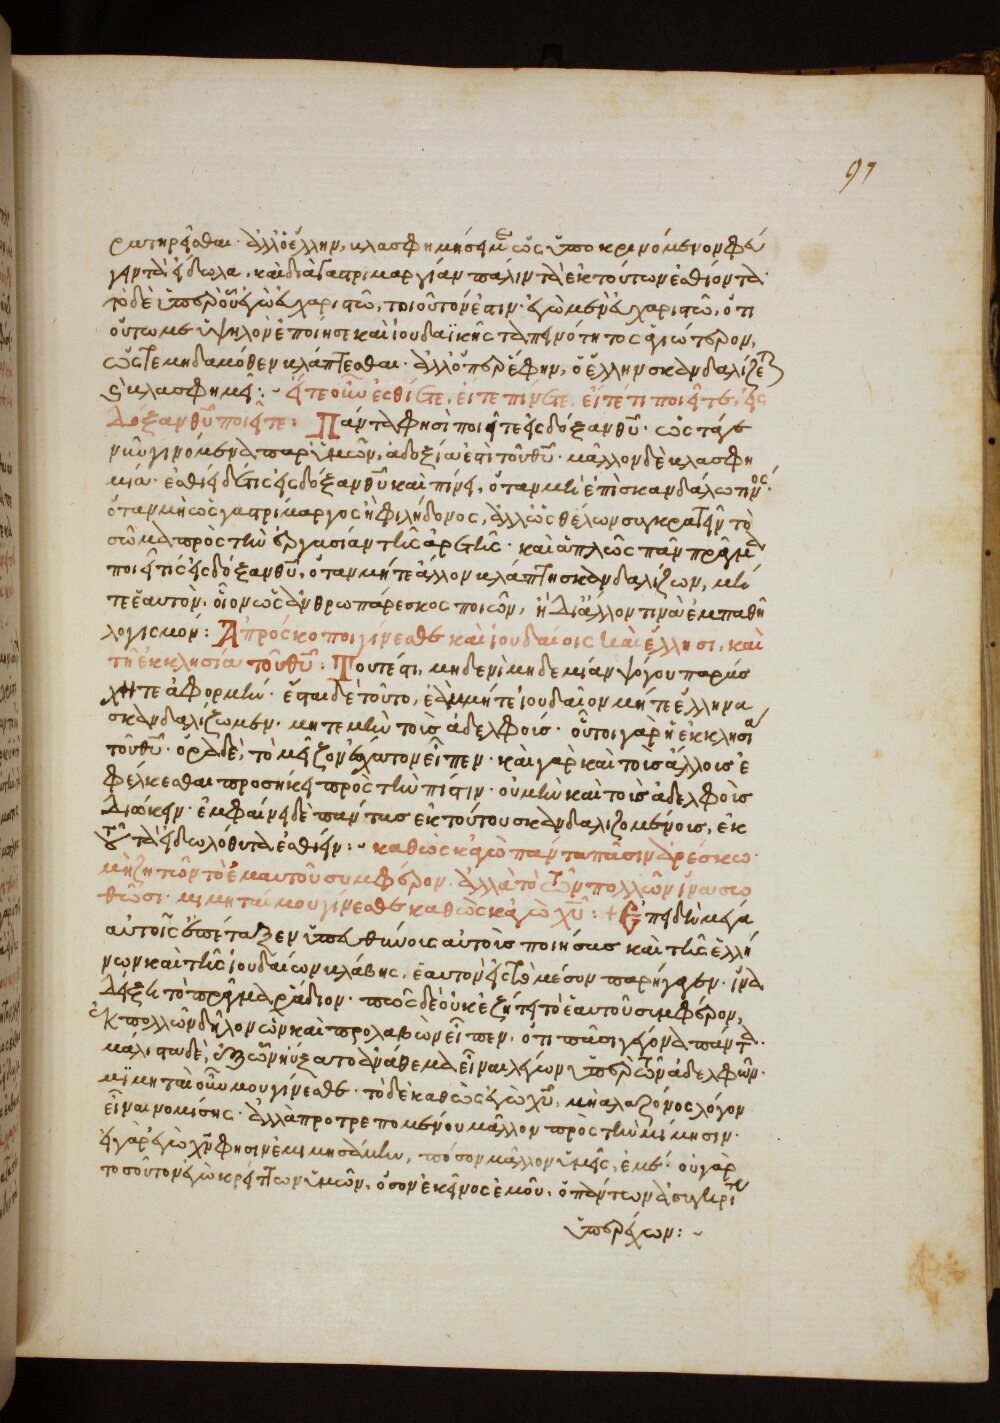 97
ρατηρεῖσθαι· ἀλλ' ὁ ἕλλην, βλασφημήσει με ὡς ὑποκρινόμενον φεύ
γειν τὰ εἴδωλα, καὶ διὰ γαστριμαργίαν πάλιν τὰ ἐκ τούτων ἐσθίοντα·
τὸ δὲ ὑπὲρ οὗ ἐγὼ εὐχαριστῶ, τοιοῦτόν ἐστιν· ἐγὼ μὲν εὐχαριστῶ, ὅτι
οὕτω με ὑψηλὸν ἐποίησε καὶ ἰουδαϊκῆς ταπεινότητος ἀνώτερον,
ὥστε μηδαμόθεν βλάπτεσθαι· ἀλλ' ὅπερ ἔφην, ὁ ἕλλην σκανδαλίζεται
καὶ βλασφημεῖ:- εἴτε οὖν ἐσθίετε, εἴτε πίνετε, εἴτε τι ποιεῖτε, εἰς
δόξαν θυ ποιεῖτε: Πάντα φησὶ ποιεῖτε εἰς δόξαν θυ· ὡς τάγε
νῦν γινόμενα παρ' ὑμῶν, ἀδοξία ἐστὶ τοῦ θυ· μᾶλλον δὲ βλασφη
μία· ἐσθίει δέ τις εἰς δόξαν θυ καὶ πίνει, ὅταν μὴ ἐπὶ σκανδάλω τινός·
ὅταν μὴ ὡς γαστρίμαργος ἢ φιλήδονος, ἀλλ' ὡς θέλων συγκρατεῖν τὸ
σῶμα πρὸς τὴν ἐργασίαν τῆς ἀρετῆς· καὶ ἁπλῶς πᾶν πρᾶγμα
ποιεῖ τις εἰς δόξαν θυ, ὅταν μήτε ἄλλον βλάπτη σκανδαλίζων, μή
τε ἑαυτόν· οἷον ὡς ἀνθρωπάρεσκος ποιῶν, ἢ δι' ἄλλόν τινα ἐμπαθῆ
λογισμόν: Ἀπρόσκοποι γίνεσθε καὶ ἰουδαίοις καὶ ἕλλησι, καὶ
τῇ ἐκκλησία τοῦ θυ: Τουτέστι, μηδενὶ μηδεμίαν ψόγου παρέ
χητε ἀφορμήν· ἔσται δὲ τοῦτο, ἐὰν μήτε ἰουδαῖον μήτε ἕλληνα
σκανδαλίζωμεν· μητε μὴν τοῖς ἀδελφοῖς· οὗτοι γὰρ ἡ ἐκκλησία
τοῦ θυ· ὅρα δὲ, τὸ μεῖζον ἔσχατον εἶπεν· καὶ γὰρ καὶ τοὺς ἄλλους ἐ
φέλκεσθαι προσήκει πρὸς τὴν πίστιν· οὐ μὴν καὶ τοὺς ἀδελφοὺς
διώκειν· ἐμφαίνει δὲ πάντας ἐκ τούτου σκανδαλιζομένους, ἐκ
τοῦ τὰ εἰδωλόθυτα ἐσθίειν:- καθὼς κἀγὼ πάντα πᾶσιν ἀρέσκω·
μὴ ζητῶν τὸ ἐμαυτοῦ συμφέρον, ἀλλὰ τὸ τῶν πολλῶν ἵνα σω
θῶσι· μιμηταί μου γίνεσθε καθὼς κἀγὼ χυ: + Ἐπειδὴ μέγα
αὐτοῖς ἐπέταξεν ὑπευθύνους αὐτοὺς ποιήσας καὶ τῆς ἑλλή
νων καὶ τῆς ἰουδαίων βλάβης, ἑαυτὸν εἰς τὸ μέσον παρήγαγεν· ἵνα
δείξη τὸ πρᾶγμα ῥάδιον· πῶς δὲ οὐκ ἐζήτει τὸ ἑαυτοῦ συμφέρον,
ἐκ πολλῶν δῆλον ὧν καὶ προλαβὼν εἶπεν, ὅτι πᾶσι γέγονα πάντα·
μάλιστα δὲ, ἐξ ὧν ηὔξατο ἀνάθεμα εἶναι λέγων ὑπὲρ τῶν ἀδελφῶν·
μϊμηταὶ οὖν μου γίνεσθε· τὸ δὲ καθὼς ἐγὼ χυ, μὴ ἀλαζόνος λόγον
εἶναι νομίσης· ἀλλὰ προτρεπομένου μᾶλλον πρὸς τὴν μίμησιν·
εἰ γὰρ ἐγὼ χν φησιν ἐμιμησάμην, πόσον μᾶλλον ὑμεῖς, ἐμέ· οὐ γὰρ
τοσοῦτον ἐγὼ κρείττων ὑμῶν, ὅσον ἐκεῖνος ἐμοῦ, ὁ πάντων ἀσυγκρίτως
ὑπερέχων:-